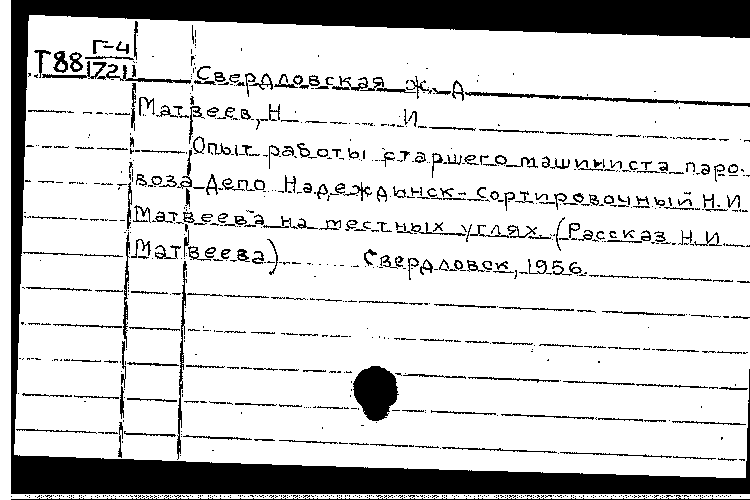 Т88 Г-4
1721
Свердловская ж. д
Матвеев, Н И
Опыт работы старшего машиниста паро-
воза депо Надеждинск-сортировочный Н.И
Матвеева на местных углях (Рассказ Н.И
Матвеева) Свердловск, 1956